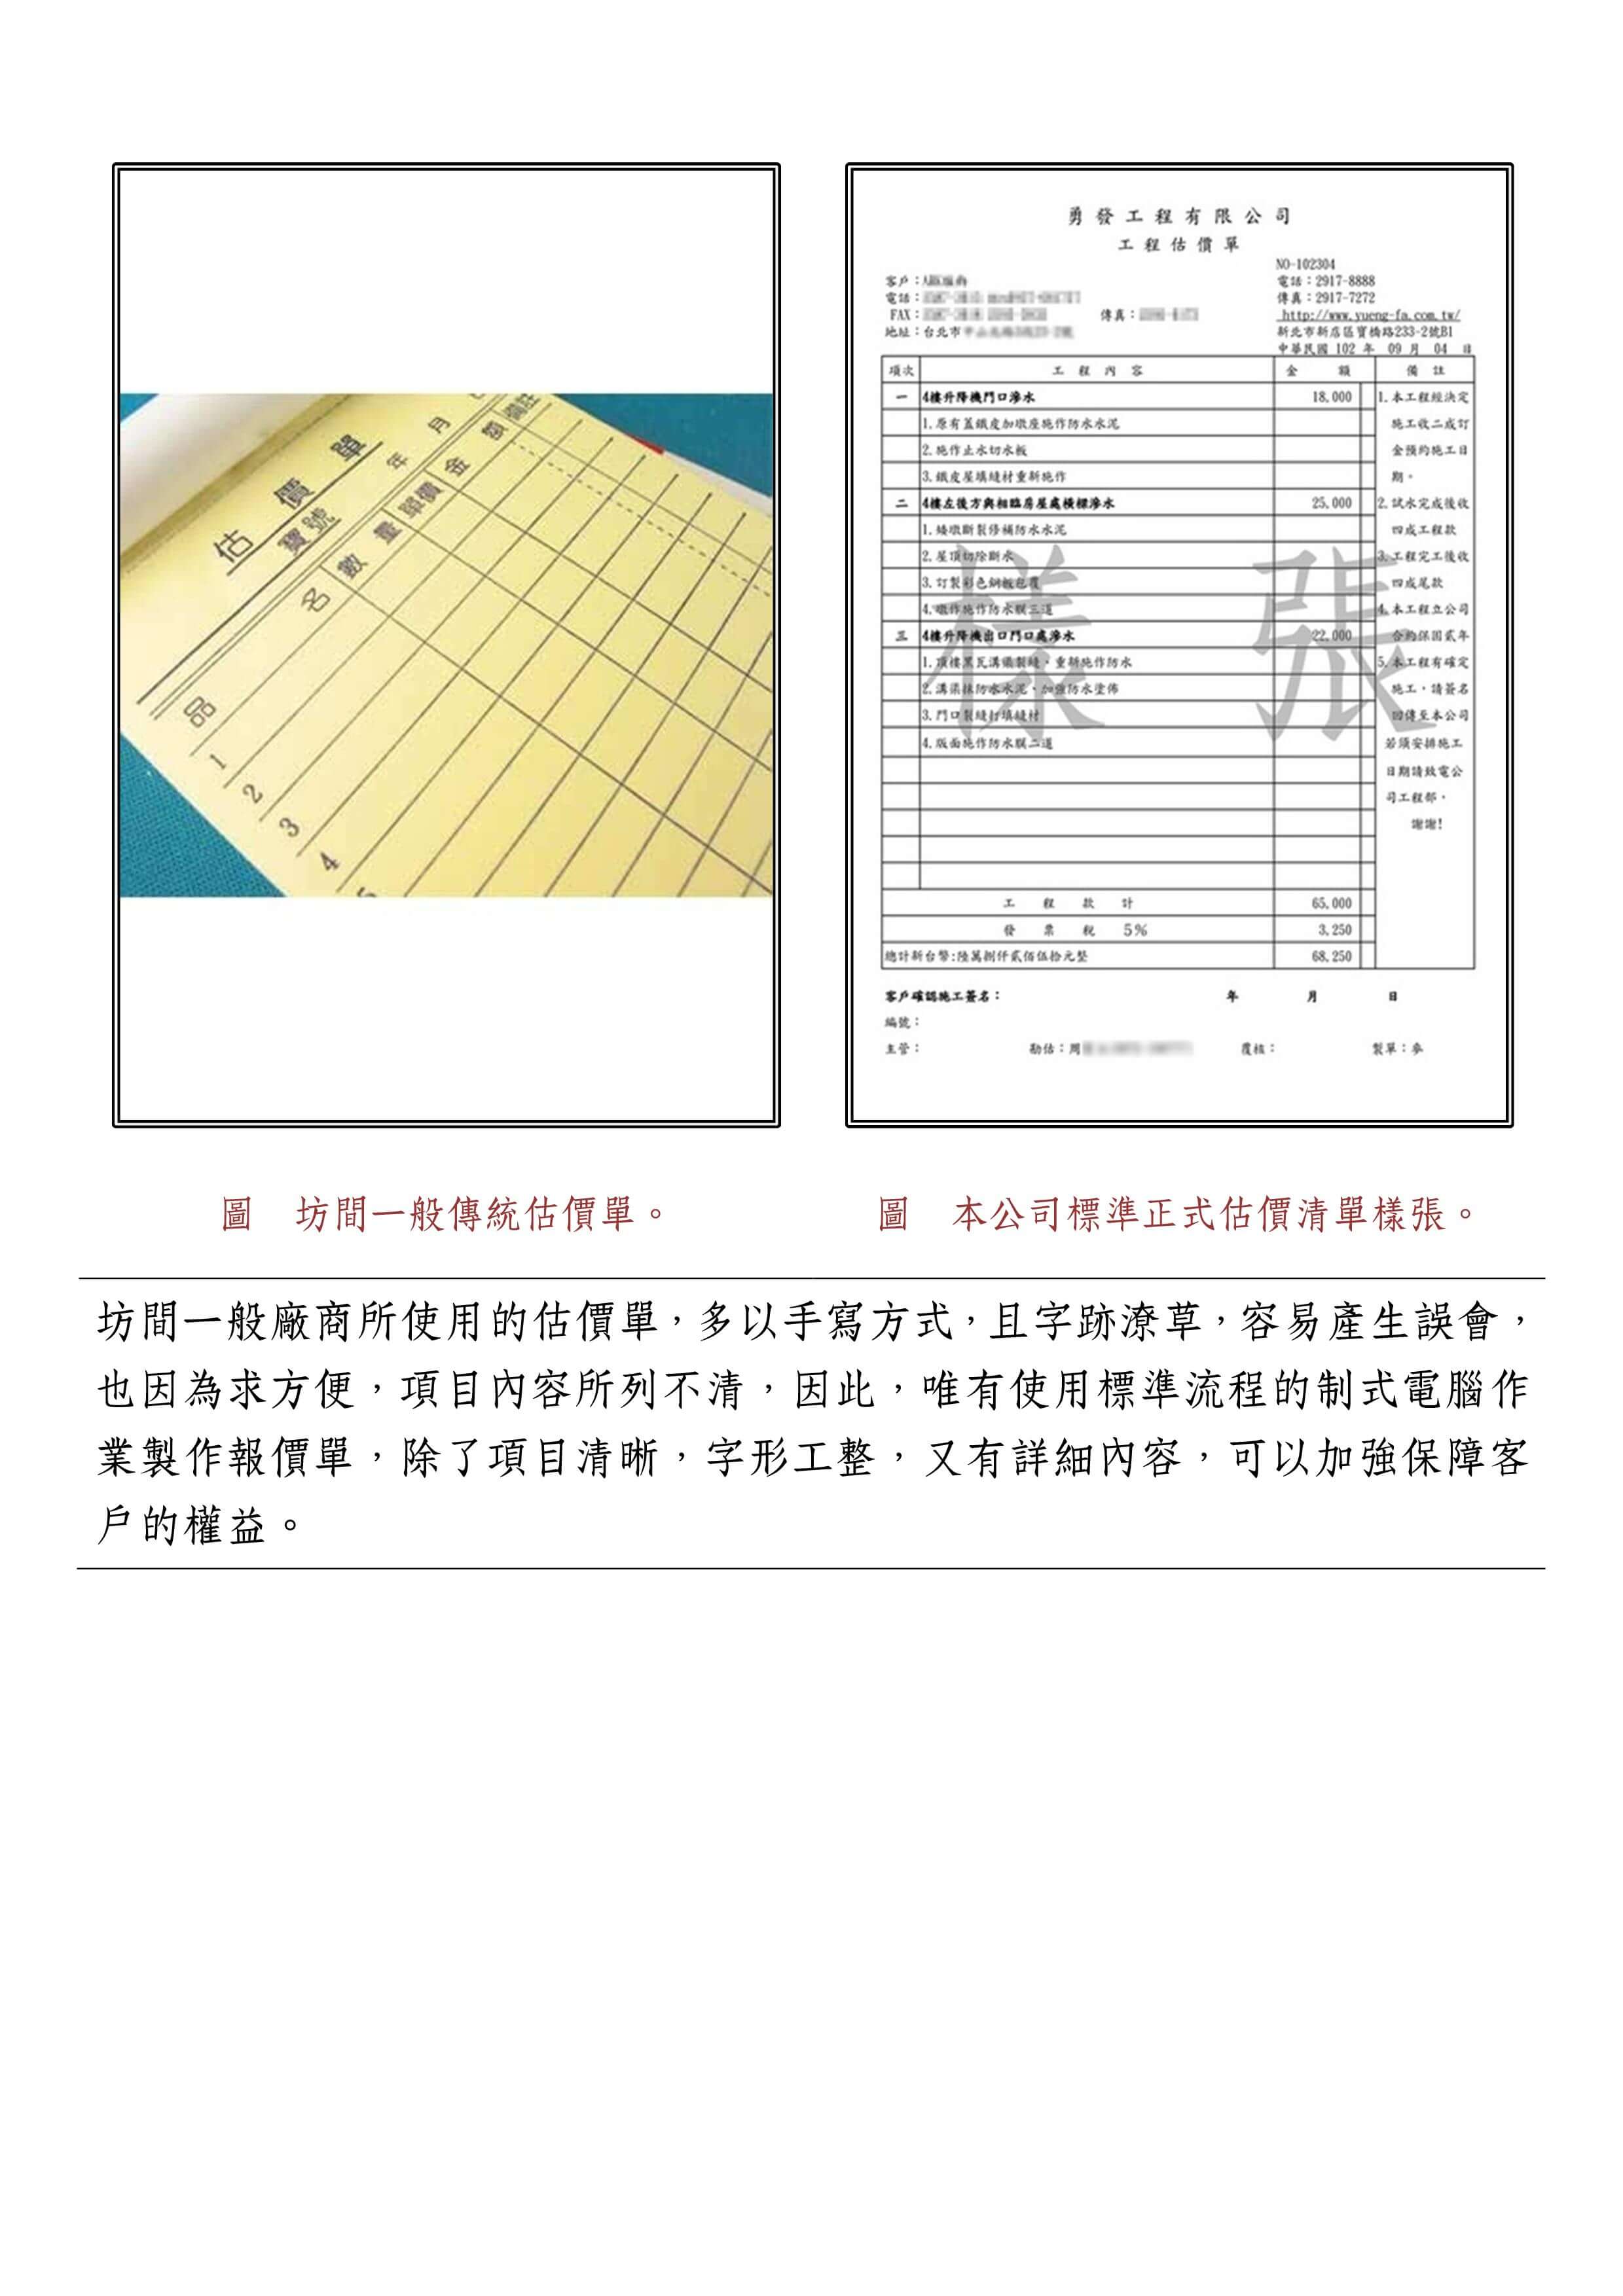 估價單
寶號
年 月
品 名 數 量 單價 金 額 備註
1
2
3
4
5
勇發工程有限公司
工程估價單
NO-102304
客戶：
電話：2917-8888
電話：
傳真：2917-7272
FAX：
傳真：
http://www.yueng-fa.com.tw/
地址：台北市
新北市新店區寶橋路233-2號B1
中華民國 102 年 09 月 04 日
項次 工程內容 金額 備註
一 4樓升降機門口滲水 18,000 1.本工程經決定
1.原有蓋鐵皮加墩座施作防水水泥 施工收二成訂
2.施作止水切水板 金預約施工日
3.鐵皮屋填縫材重新施作 期。
二 4樓左後方與相臨房屋處橫樑滲水 25,000 2.試水完成後收
1.矮墩斷裂修補防水水泥 四成工程款
2.屋頂切除斷水 3.工程完工後收
3.訂製彩色鋼板包覆 四成尾款
4.墩作施作防水膜三道 4.本工程立公司
三 4樓升降機出口門口處滲水 22,000 合約保固貳年
1.頂樓黑瓦溝渠裂縫，重新施作防水 5.本工程有確定
2.溝渠抹防水水泥，加強防水塗佈 施工，請簽名
3.門口裂縫打填縫材 回傳至本公司
4.版面施作防水膜二道 若須安排施工
日期請致電公
司工程部，
謝謝!
樣 張
工程款計 65,000
發票稅 5% 3,250
總計新台幣:陸萬捌仟貳佰伍拾元整 68,250
客戶確認施工簽名： 年 月 日
編號：
主管： 勘估：周 覆核： 製單：麥
圖 坊間一般傳統估價單。
圖 本公司標準正式估價清單樣張。
坊間一般廠商所使用的估價單，多以手寫方式，且字跡潦草，容易產生誤會，
也因為求方便，項目內容所列不清，因此，唯有使用標準流程的制式電腦作
業製作報價單，除了項目清晰，字形工整，又有詳細內容，可以加強保障客
戶的權益。